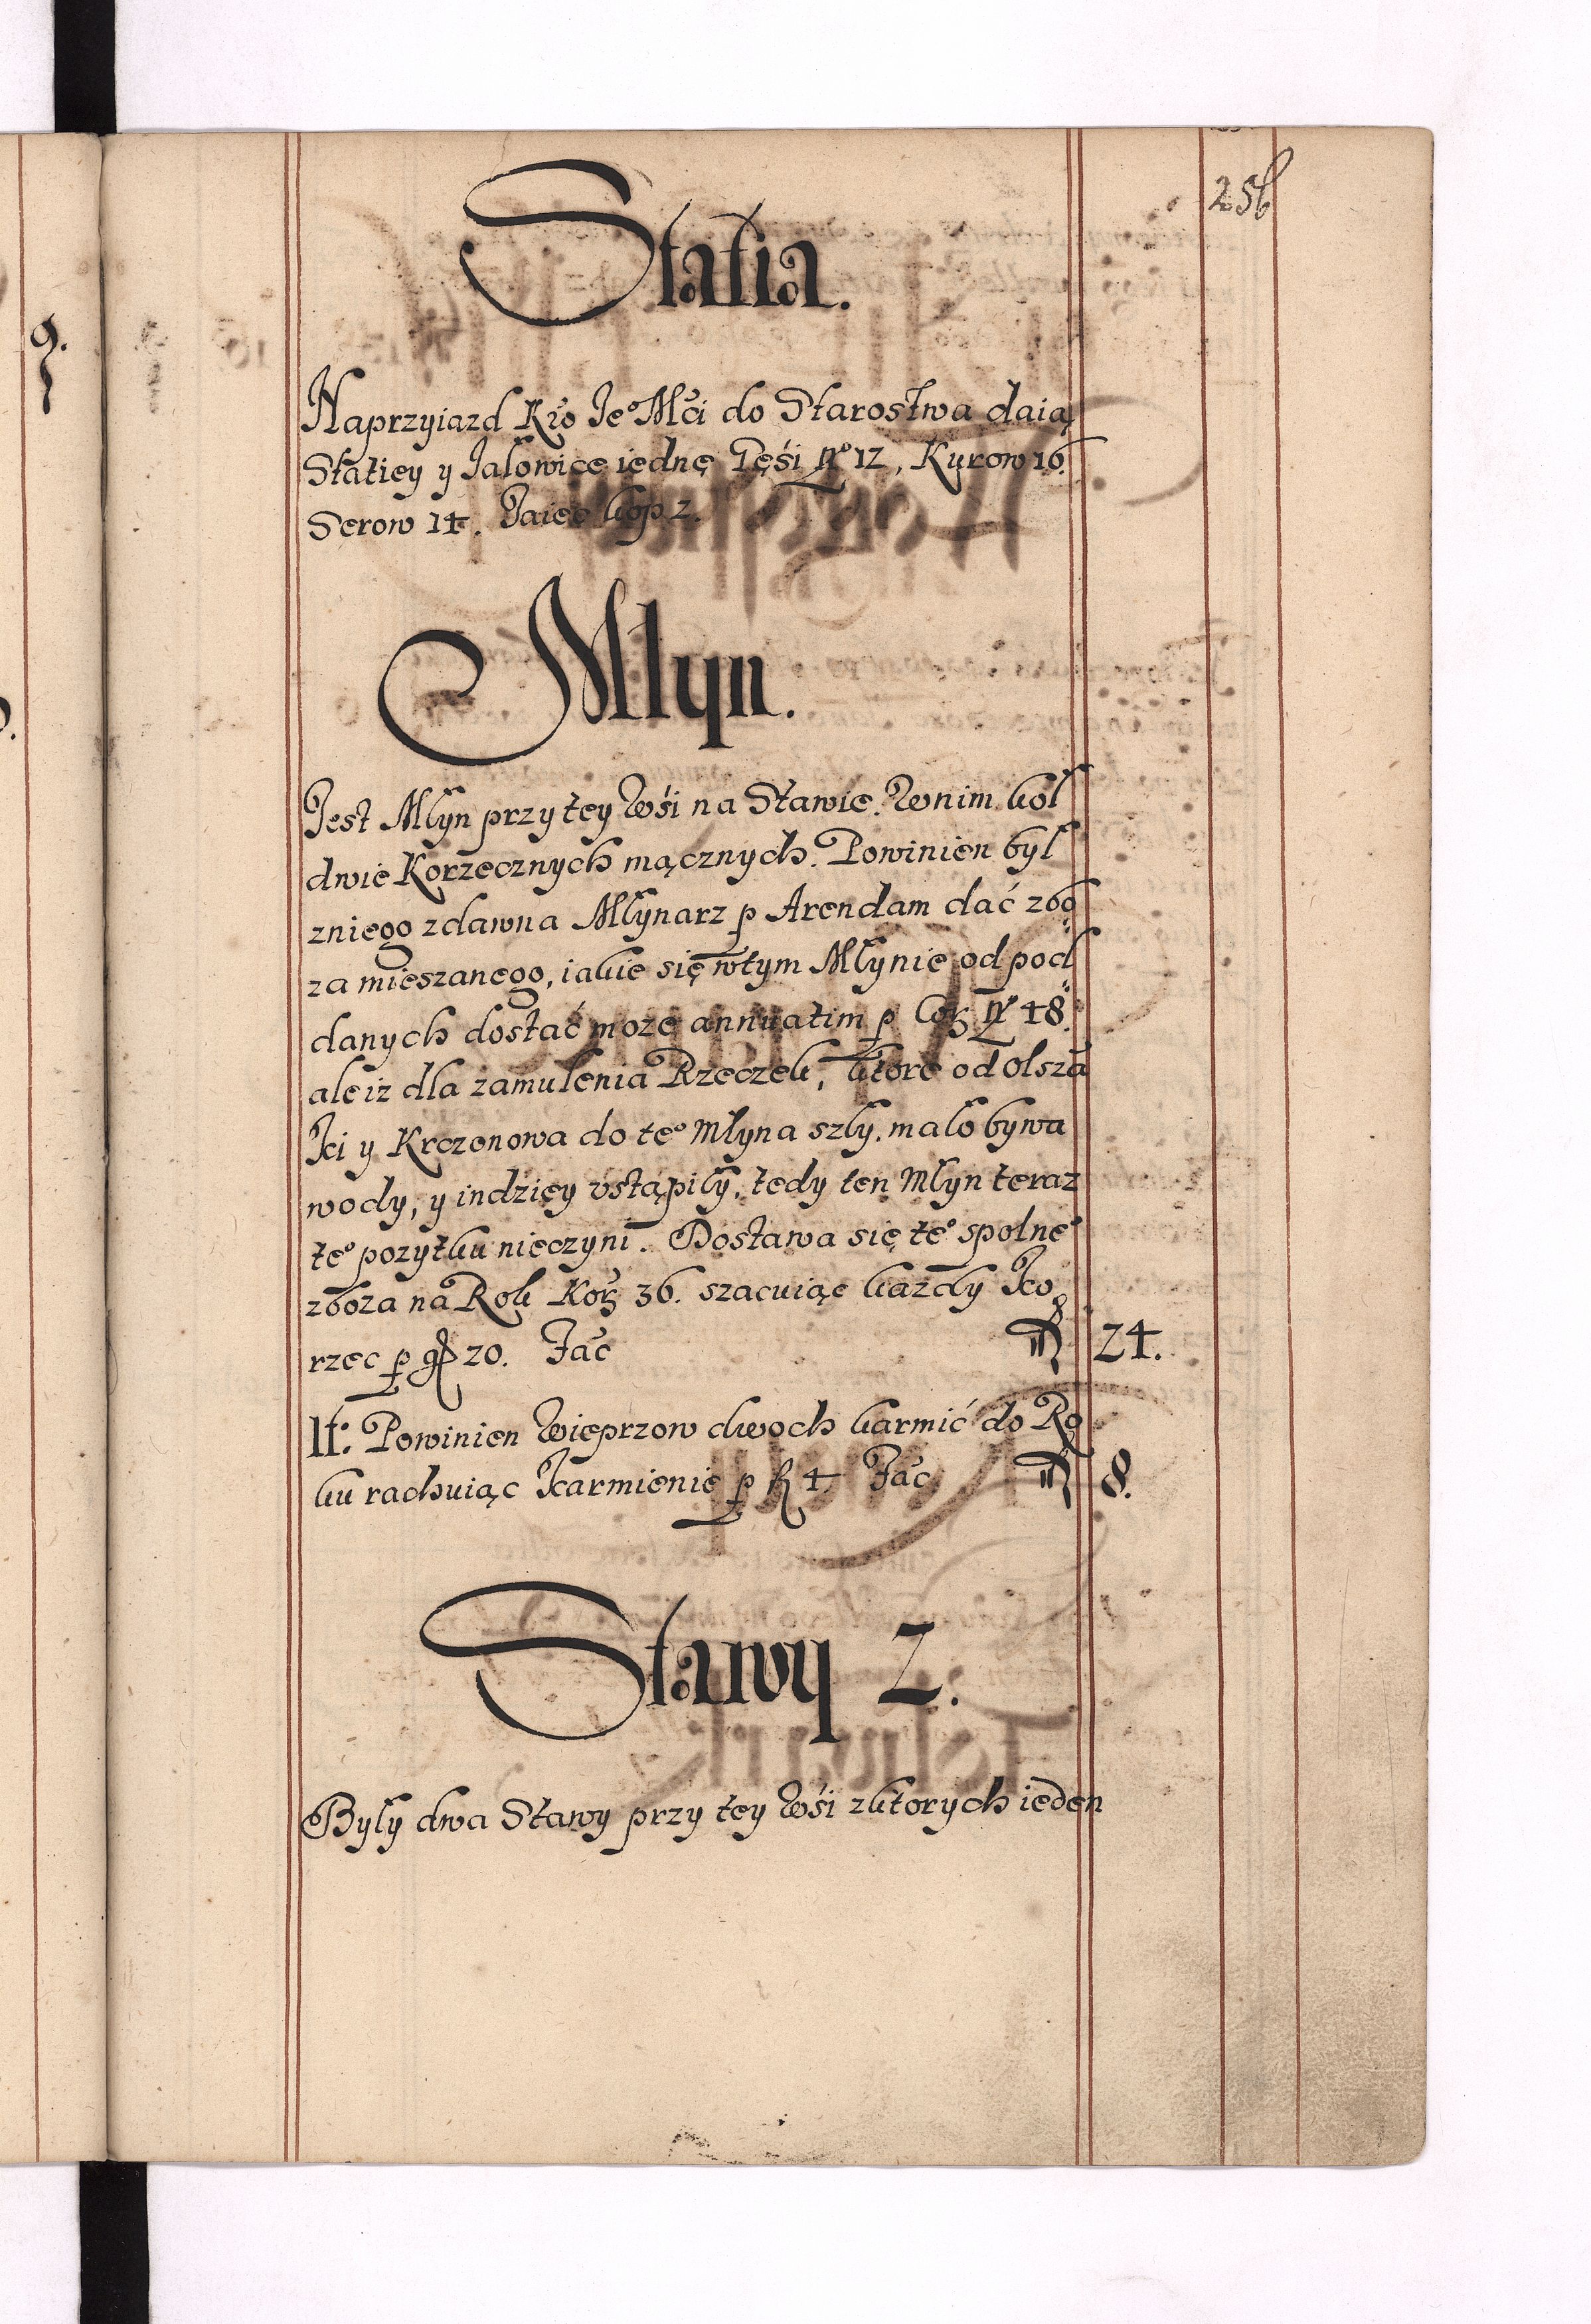 256
Statia.
Naprzyiazd Kro Je° Mći do Starostwa daią
Statiey y Jalowice iednę Gęśi N° 12, Kurow 16.
Serow 14. Jaiec kop 2.
Młyn.
Jest Młyn przy tey Wśi na Stawie. Wnim kol
dwie Korzecznych mącznych. Powinien był
zniego zdawna Młynarz p Arendam dać zbo
za mieszanego, iakie się wtym Młynie od pod
danych dostać może annuatim p Cor N° 48.
ale iz dla zamulenia Rzeczek, ktore od Olsza
Ki y Krczonowa do te° Młyna szły, malo bywa
wody, y indziey vstąpiły, tedy ten Młyn teraz
te° pozytku nieczyni. Dostawa się te° spolne°
zboza na Rok Kor 36. szacuiąc kazdy Ko
rzec p gr 20. Fac 24.
It: Powinien Wieprzow dwoch karmić do Ro
ku rachuiąc Karmienie p fl 4 Fac 8.
Stawy 2.
Były dwa Stawy przy tey Wśi zktorych ieden
9.